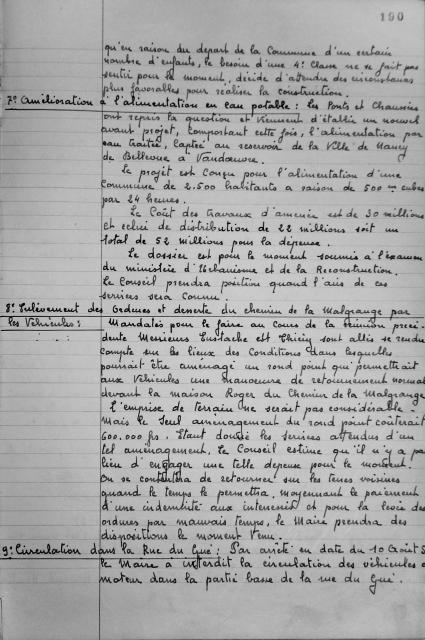 190
qu'en raison du départ de la Commune d'un certain
nombre d'enfants, le besoin d'une 4e Classe ne se fait pas
sentir pour le moment, décide d'attendre des circonstances
plus favorables pour réaliser la construction.
7° Amélioration à l'alimentation en eau potable : Les Ponts et Chaussées
ont repris la question et viennent d'établir un nouvel
avant projet, comportant cette fois, l'alimentation par
eau traitée, captée au reservoir de la Ville de Nancy
de Bellevue à Vandoeuvre.
Le projet est conçu pour l'alimentation d'une
Commune de 2.500 habitants à raison de 500 cubes
par 24 heures.
Le Coût des travaux d'amenée est de 30 millions
et celui de distribution de 22 millions soit un
total de 52 millions pour la dépense.
Le dossier est pour le moment soumis à l'examen
du ministère d'Urbanisme et de la Reconstruction.
Le Conseil prendra position quand l'avis de ces
services sera connu.
8° Enlèvement des Ordures et desserte du chemin de la Malgrange par
les Véhicules : Mandatés pour le faire au cours de la réunion précé-
dente Messieurs Eustache et Thiéry sont allés se rendre
compte sur les lieux des Conditions dans lesquelles
pourrait être aménagé un rond point qui permettrait
aux Véhicules une manoeuvre de retournement normal
devant la maison Roger du Chemin de la Malgrange
L'emprise de terrain ne serait pas considérable -
Mais le seul aménagement du rond point coûterait
600.000 frs. Etant donné les services attendus d'un
tel aménagement, le Conseil estime qu'il n'y a pas
lieu d'engager une telle dépense pour le moment.
On se contentera de retourner sur les terres voisines
quand le temps le permettra, moyennant le paiement
d'une indemnité aux interessés et pour la levée des
ordures par mauvais temps, le Maire prendra des
dispositions le moment venu.
9° Circulation dans la Rue du Gué : Par arrêté en date du 10 Août
le Maire a interdit la circulation des véhicules à
moteur dans la partie basse de la rue du Gué.